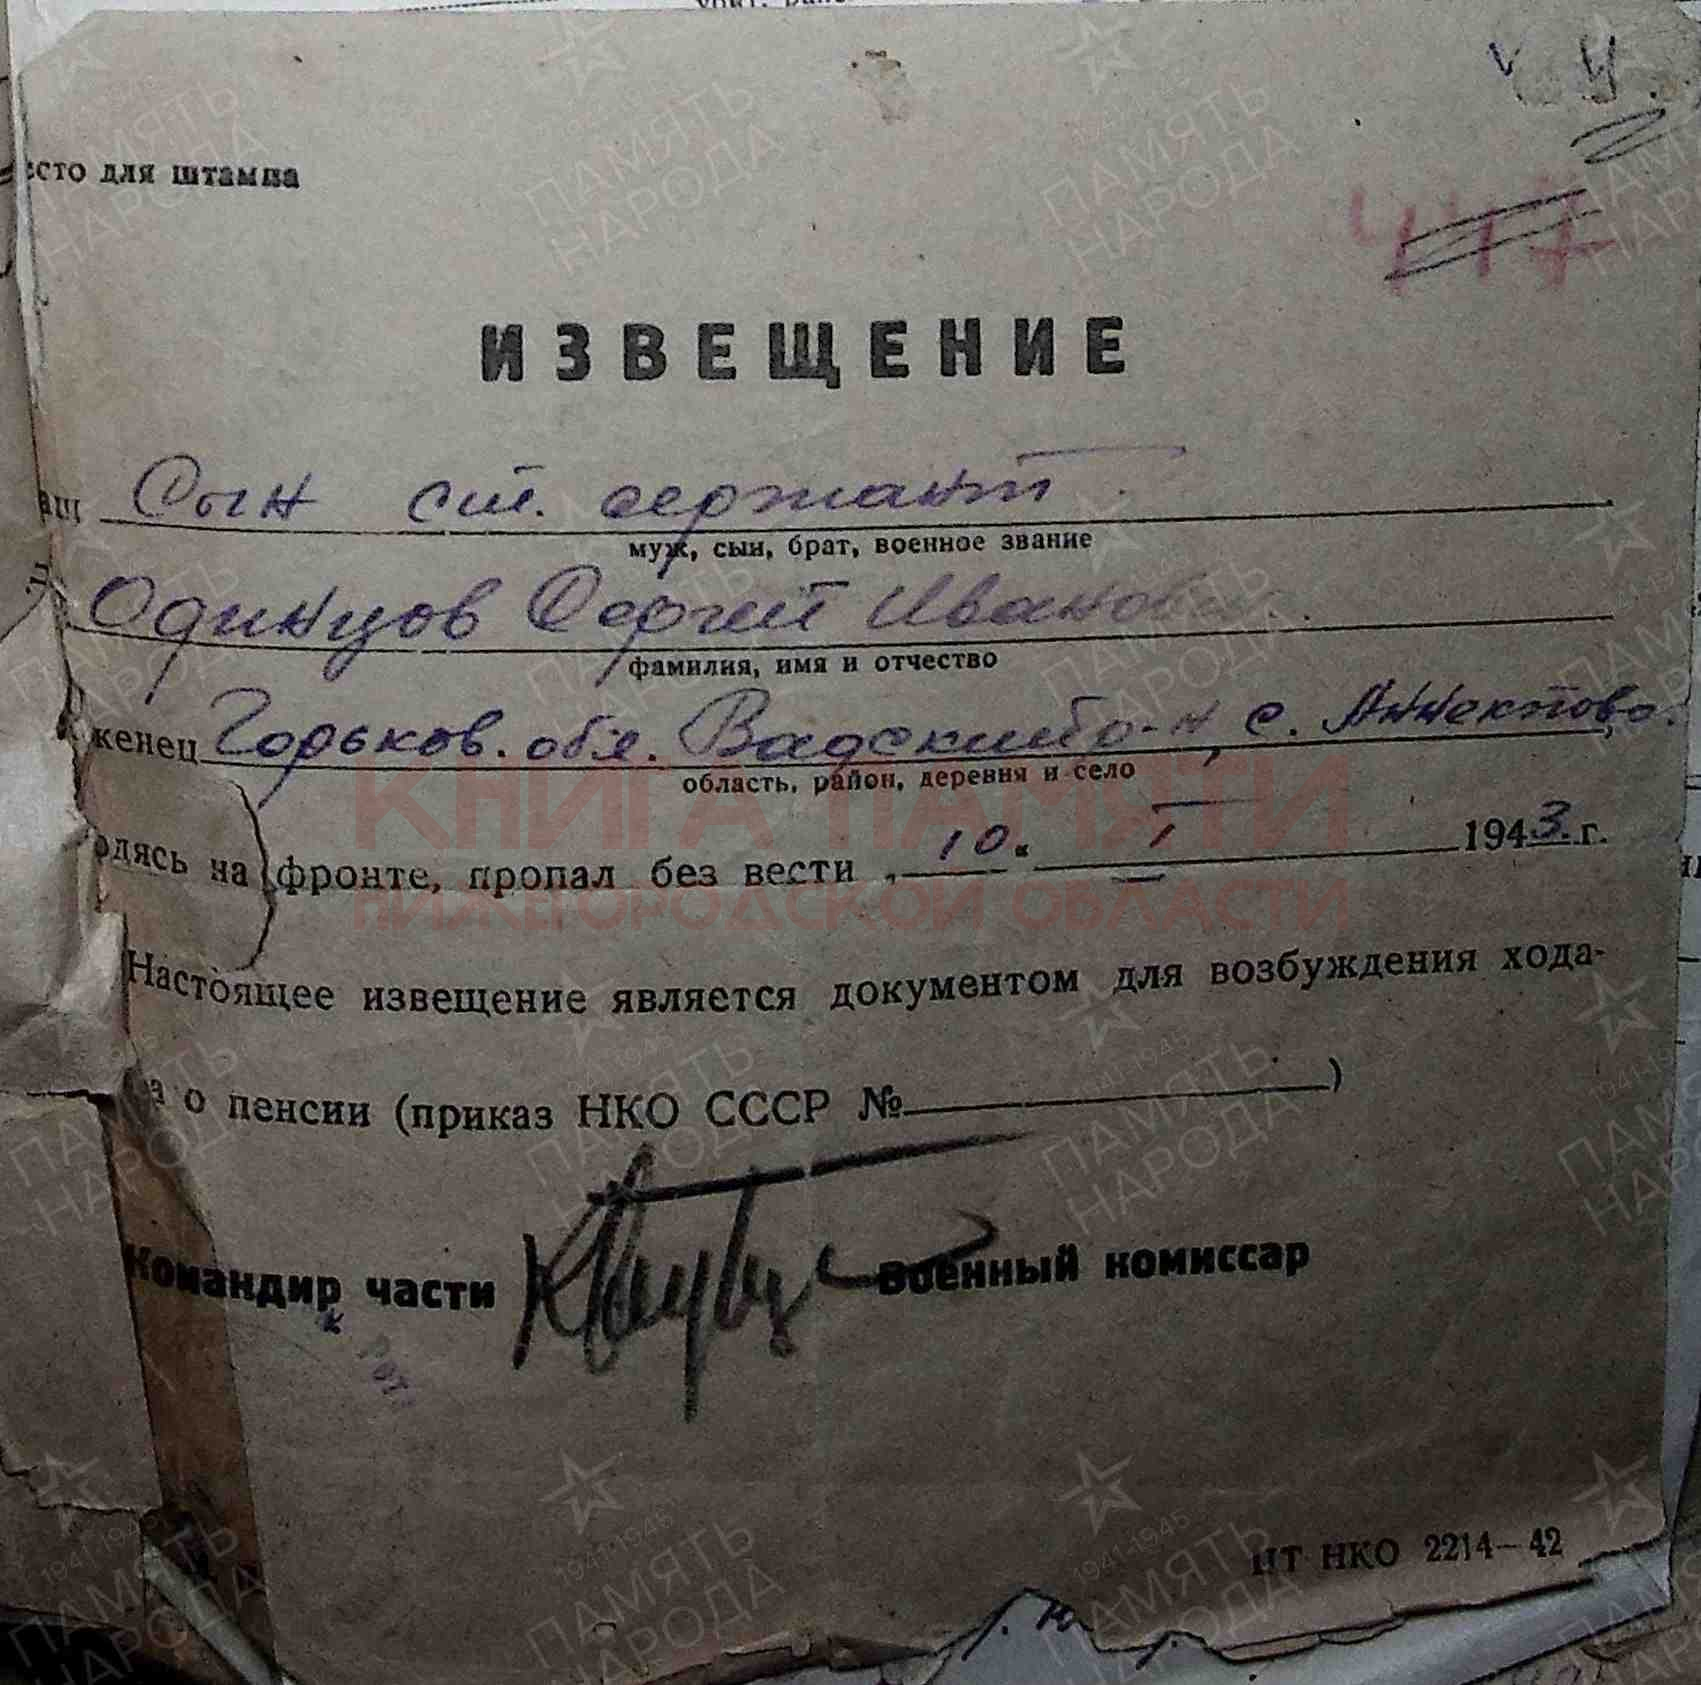 есто для штампа
417
ИЗВЕЩЕНИЕ
аш Сын ст. сержант
муж, сын, брат, военное звание
Одинцов Сергей Иванов
фамилия, имя и отчество
женец Горьков. обл. Вадский р-н, с. Аннектово.
область, район, деревня и село
одясь на фронте, пропал без вести „10" I 1943 г.
КНИГА ПАМЯТИ
НИЖЕГОРОДСКОЙ ОБЛАСТИ
Настоящее извещение является документом для возбуждения хода-
ва о пенсии (приказ НКО СССР № )
Командир части Военный комиссар
ЦТ НКО 2214—42
ПАМЯТЬ НАРОДА
1941-1945